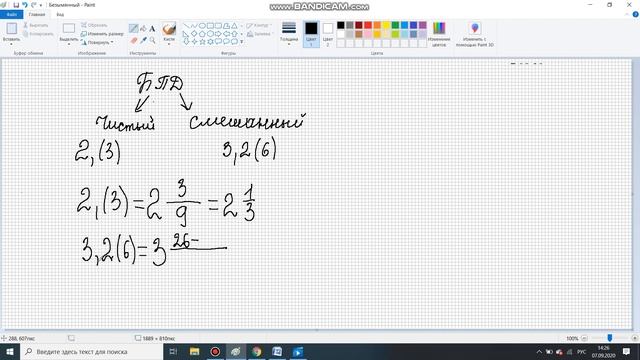 www.BANDICAM.com
Безымянный - Paint
Файл Главная Вид
Вставить
Выделить
Обрезать
Изменить размер
Повернуть
Кисти
Фигуры
Контур
Заливка
Толщина
Цвет 1
Цвет 2
Изменение цветов
Изменить с помощью Paint 3D
Буфер обмена Изображение Инструменты Фигуры Цвета
БПД
Чистый Смешанный
2,(3) 3,2(6)
2,(3) = 2 3/9 = 2 1/3
3,2(6) = 3 26-
288, 607пкс 1889 × 810пкс 100%
Введите здесь текст для поиска
РУС
14:26
07.09.2020